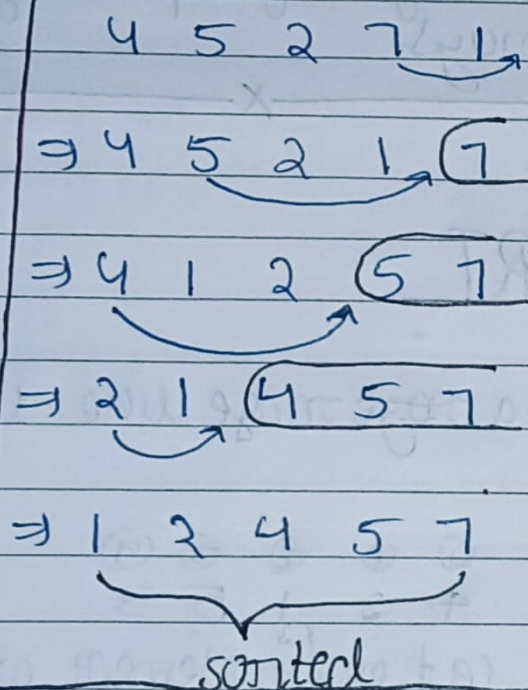 4 5 2 7 1
⇒ 4 5 2 1 7
⇒ 4 1 2 5 7
⇒ 2 1 4 5 7
⇒ 1 2 4 5 7
sorted